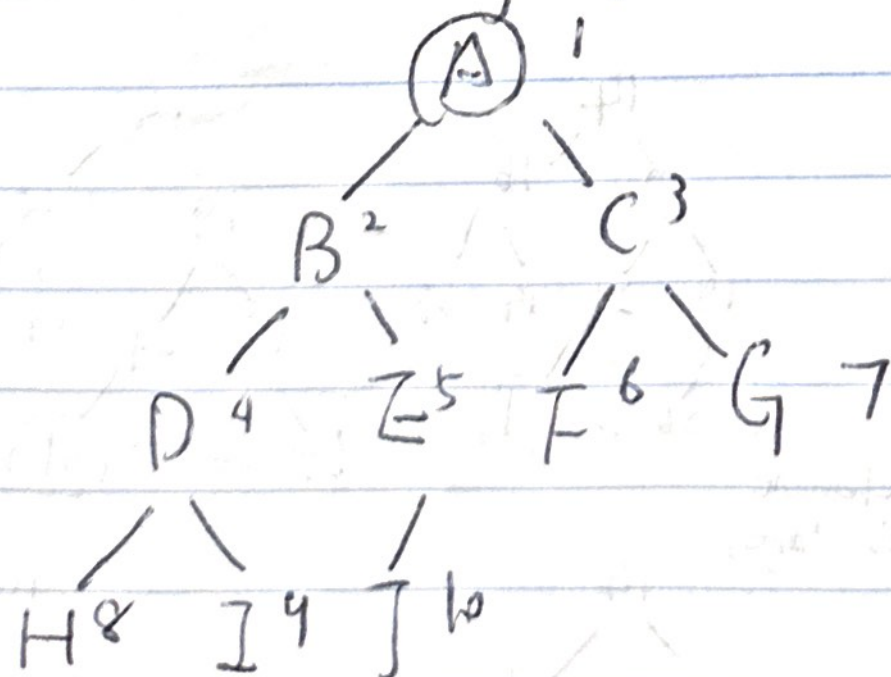 A 1
B 2 C 3
D 4 E 5 F 6 G 7
H 8 I 9 J 10